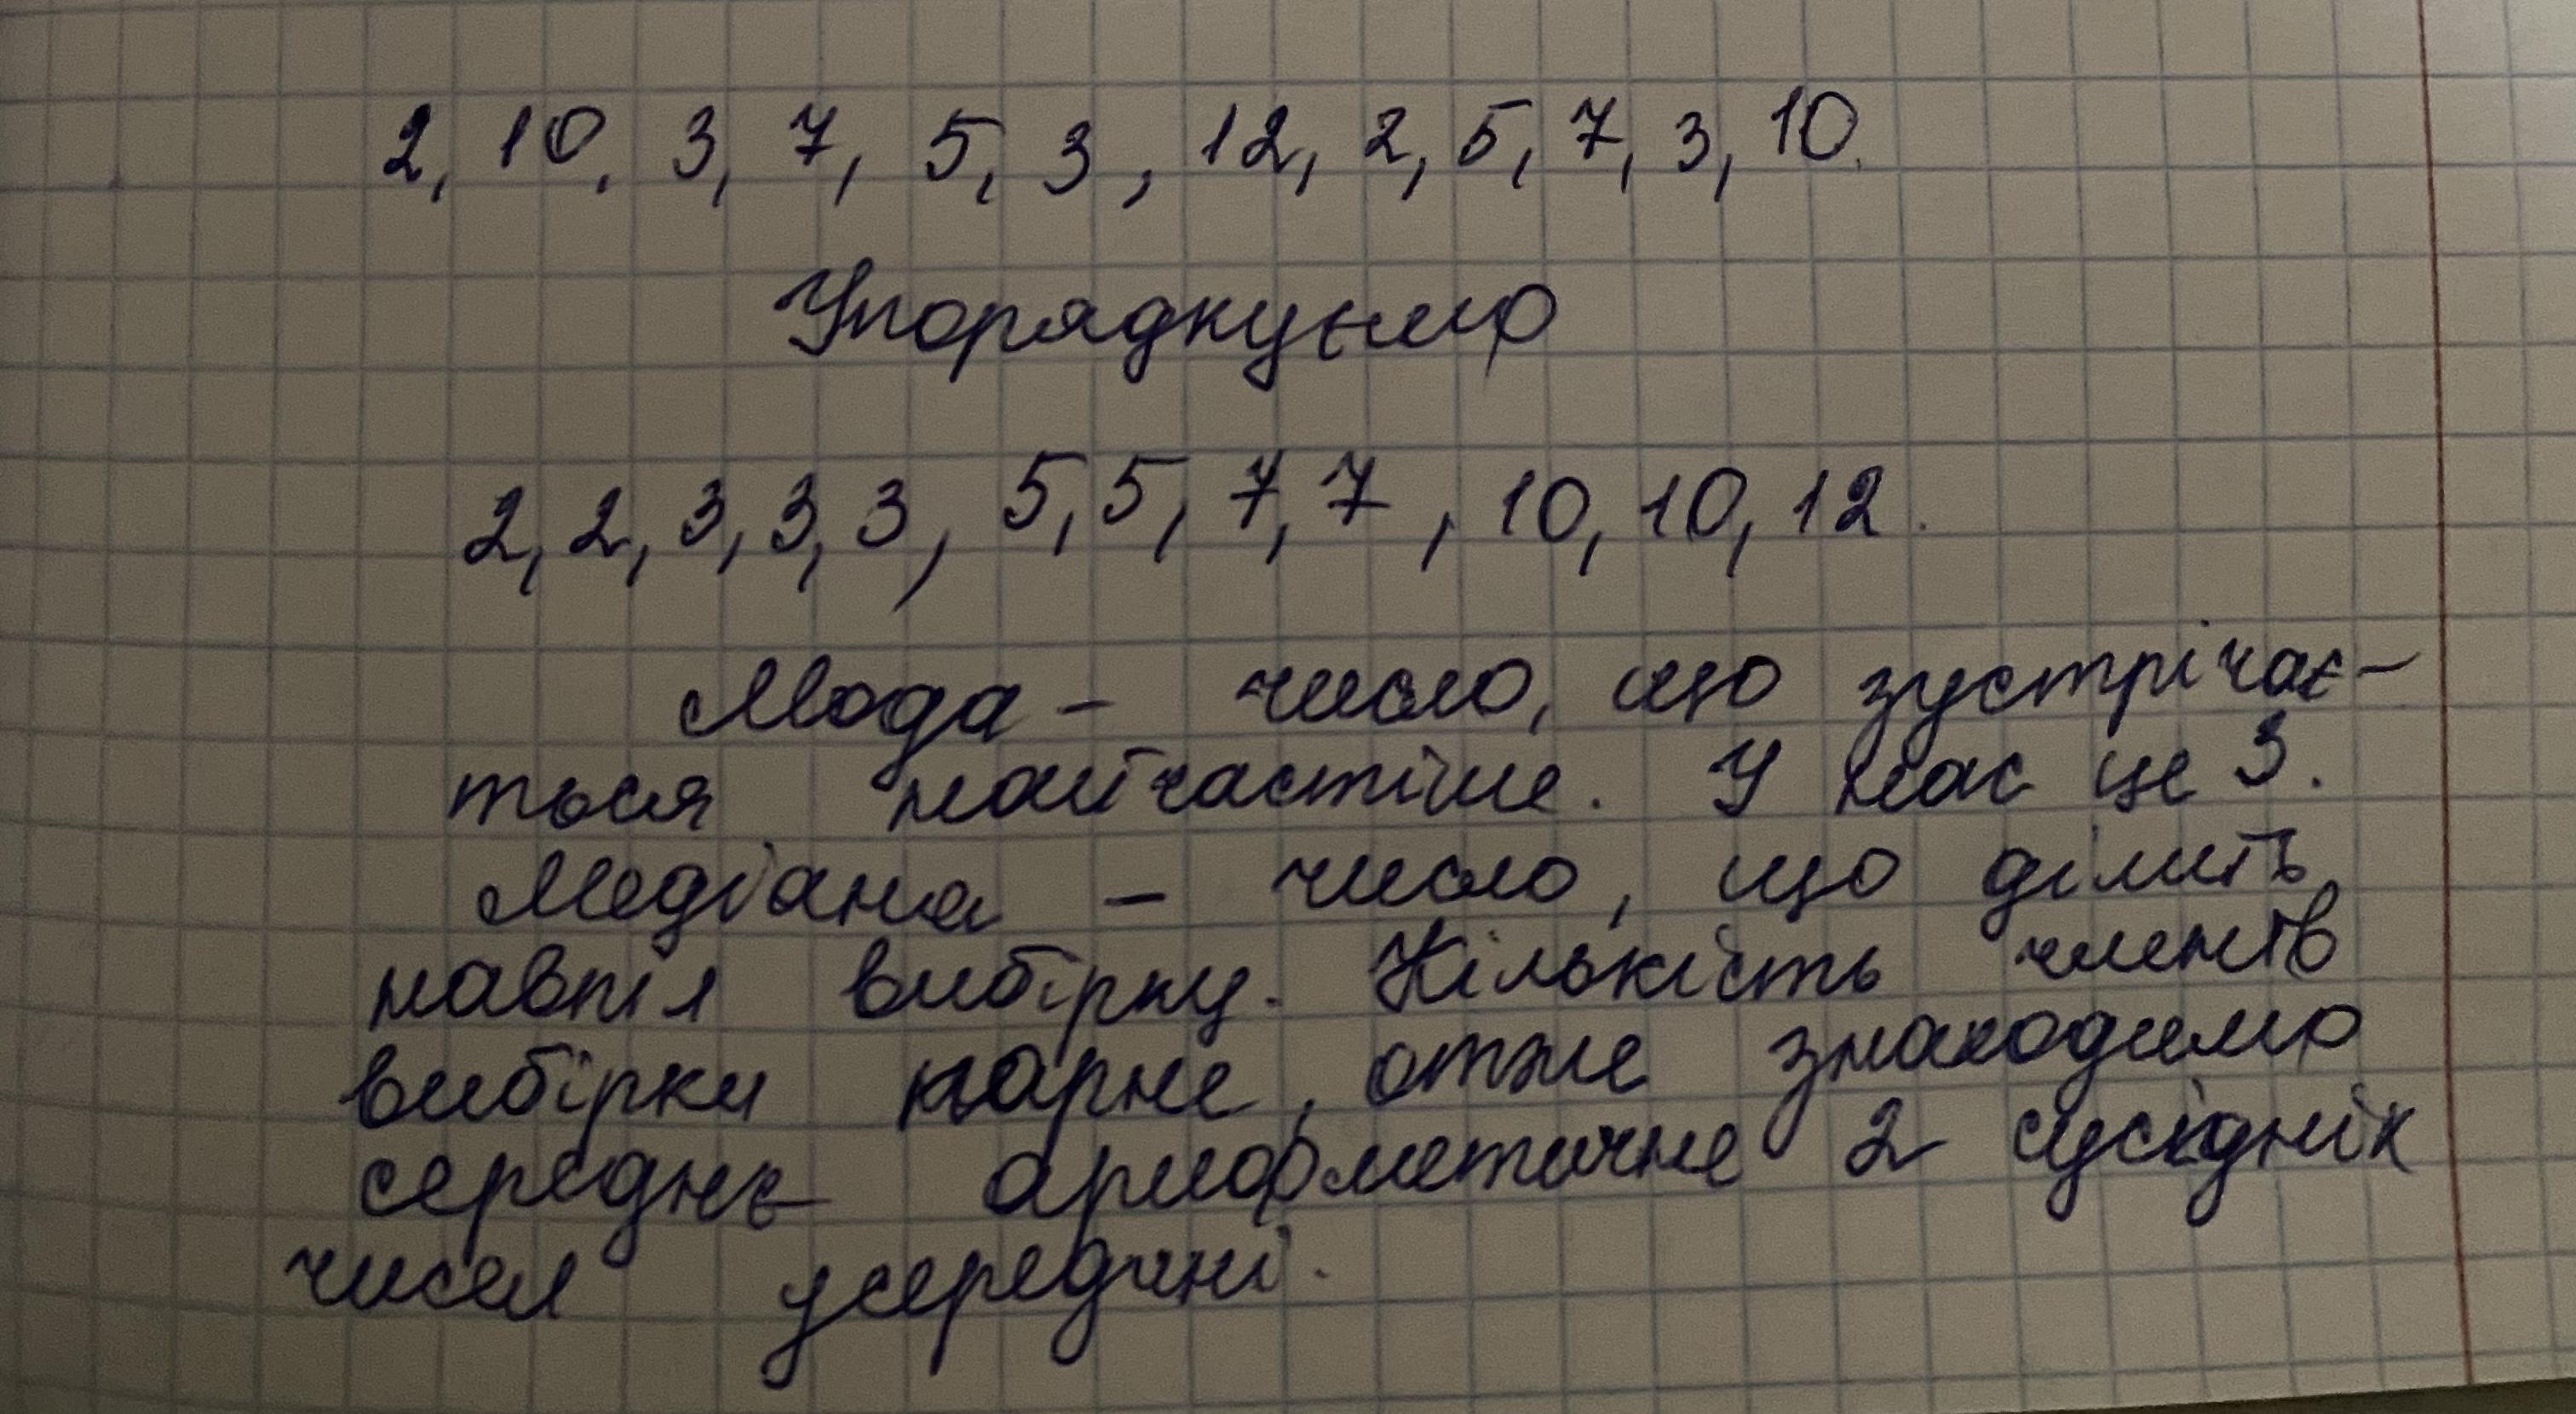 2, 10, 3, 7, 5, 3, 12, 2, 5, 7, 3, 10.
Упорядкуємо
2, 2, 3, 3, 3, 5, 5, 7, 7, 10, 10, 12.
Мода - число, що зустрічає-
ться найчастіше. У нас це 3.
Медіана - число, що ділить
навпіл вибірку. Кількість членів
вибірки парне, отже знаходимо
середнє ариформетичне 2 сусідніх
чисел усередині.